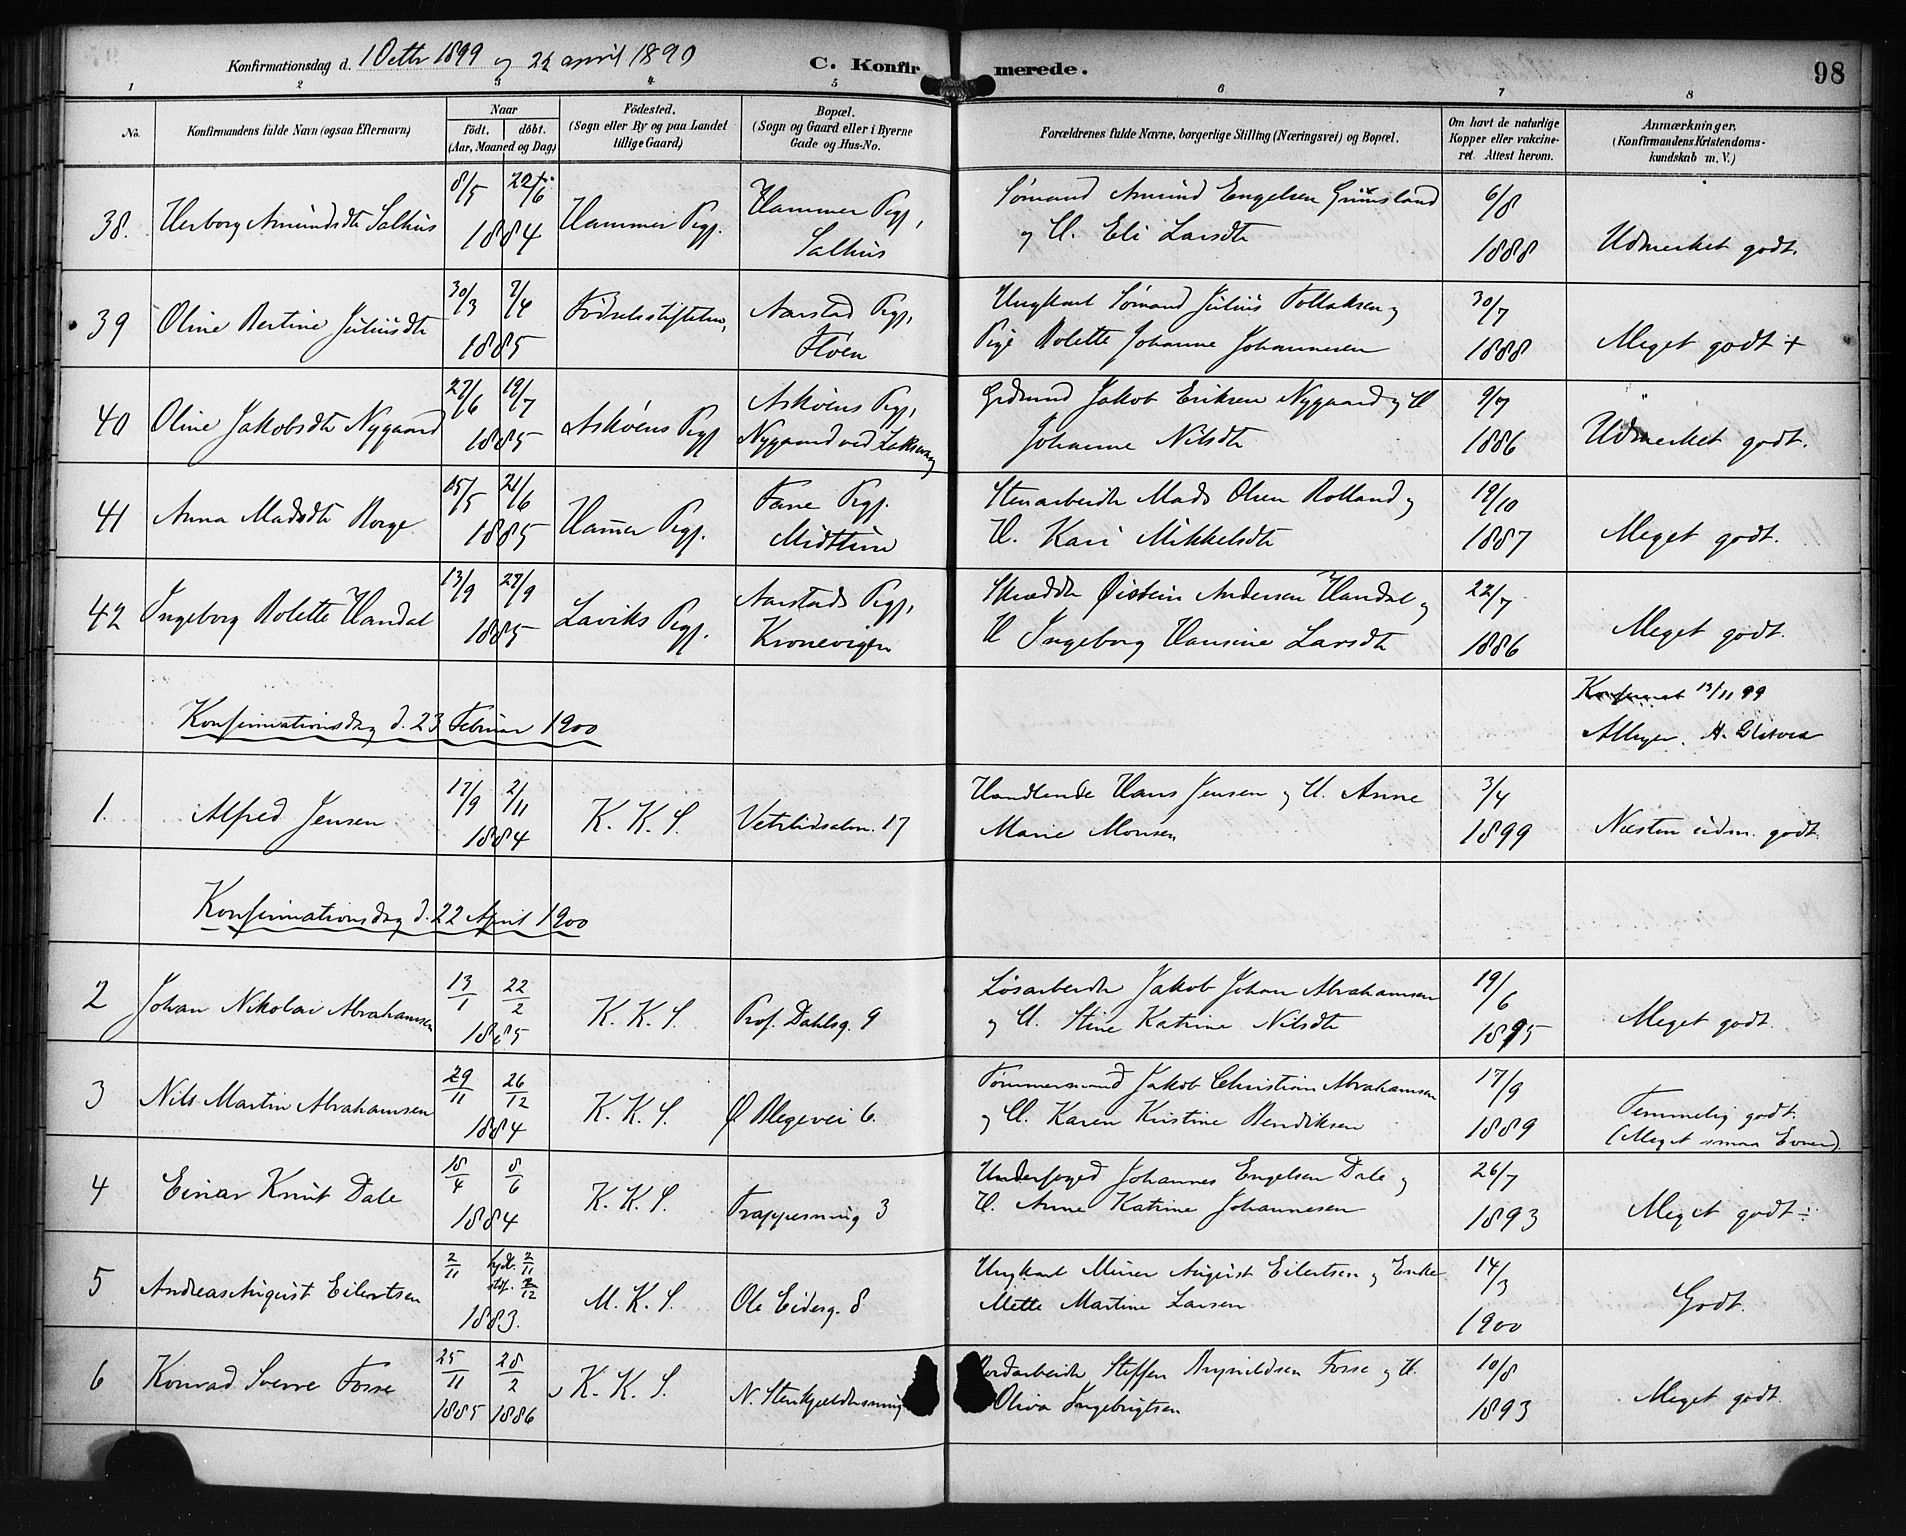 Konfirmationsdag d. 1 Octbr 1899 og 22 april 1890 C. Konfirmerede. 98
1 2 3 4 5 6 7 8
No. Konfirmandens fulde Navn (ogsaa Efternavn) Naar födt. döbt. (Aar, Maaned og Dag) Födested. (Sogn eller By og paa Landet tillige Gaard) Bopæl. (Sogn og Gaard eller i Byerne Gade og Hus-No. Forældrenes fulde Navne, borgerlige Stilling (Næringsvei) og Bopæl. Om havt de naturlige Kopper eller vakcineret. Attest herom. Anmærkninger. (Konfirmandens Kristendomskundskab m. V.)
38. Herborg Amundsdtr Salhus 8/5 22/6 1884 Hammer Pgj. Hammer Pgj, Salhus Sømand Amund Engelsen Grimsland og H. Eli Larsdtr 6/8 1888 Udmerket godt.
39 Oline Bertine Juliusdtr 30/3 7/4 1885 Fødselsstiftelsen, Aarstad Pgj, Fløen Ungkarl Sømand Julius Tollaksen og Pige Bolette Johanne Johannesen 30/7 1888 Meget godt +
40 Oline Jakobsdtr Nygaard 27/6 19/7 1885 Askøens Pgj Askøens Pgj, Nygaard ved Laksevaag Grdmand Jakob Eriksen Nygaard og H Johanne Nilsdtr 9/7 1886 Udmerket godt.
41 Anna Madsdtr Borge 15/5 21/6 1885 Hamer Pgj. Fane Pgj. Midttun Stenarbeidr Mads Olsen Rolland og H. Kari Mikkelsdtr 19/10 1887 Meget godt.
42 Ingeborg Bolette Handal 13/9 27/9 1885 Laviks Pgj. Aarstads Pgj, Kronevigen Skrædder Øistein Andersen Handal og H Ingeborg Hansine Larsdtr 22/7 1886 Meget godt.
Konfirmationsdag d. 23 Februar 1900 13/11 99
1. Alfred Jensen 17/9 2/11 1884 K. K. S. Vetrlidsalm. 17 Handlende Hans Jensen og H. Anne Marie Monsen 3/4 1899 Næsten udm. godt.
Konfirmationsdag d. 22 April 1900
2 Johan Nikolai Abrahamsen 13/1 22/2 1885 K. K. S. Prof. Dahlsg. 9 Løsarbeidr Jakob Johan Abrahamsen og H. Stine Katrine Nilsdtr 19/6 1895 Meget godt.
3 Nils Martin Abrahamsen 29/11 26/12 1884 K. K. S. Ø Blegevei 6. Tømmermand Jakob Christian Abrahamsen og H. Karen Kristine Bendiksen 17/9 1889 Temmelig godt. (Meget smaa Evner).
4 Einar Knut Dale 18/4 8/6 1884 K. K. S. Trappesmug 3 Underfoged Johannes Engelsen Dale og H. Anne Katrine Johannesen 26/7 1893 Meget godt ÷
5 Andreas August Eilertsen 2/11 hjd. 2/11 stdf. 2/12 1883. M. K. S. Ole Eidesg. 8 Ungkarl Murer August Eilertsen og Enke Mette Martine Larsen 14/3 1900 Godt.
6 Konrad Sverre Fosse 25/11 1885 28/2 1886 K. K. S. N. Stenkjeldersmug Jordarbeidr Steffen Brynildsen Fosse og H. Oliva Ingebrigtsen 10/8 1893 Meget godt.